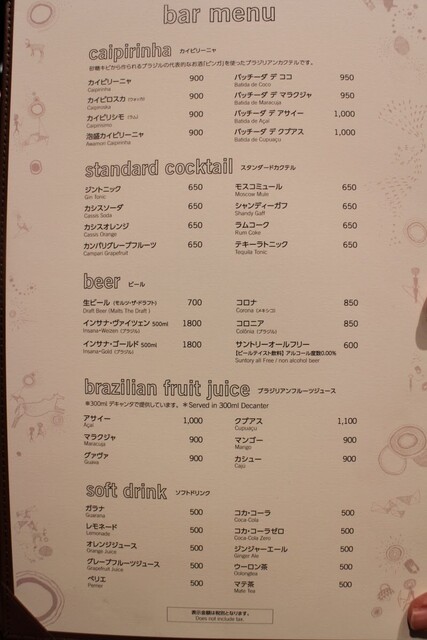 bar menu
caipirinha カイピリーニャ
砂糖キビから作られるブラジルの代表的なお酒「ピンガ」を使ったブラジリアンカクテルです。
カイピリーニャ 900
Caipirinha
カイピロスカ (ウォッカ) 900
Caipiroska
カイピリシモ (ラム) 900
Caipirissimo
泡盛カイピリーニャ 900
Awamori Caipirinha
バッチーダ デ ココ 950
Batida de Coco
バッチーダ デ マラクジャ 950
Batida de Maracuja
バッチーダ デ アサイー 1,000
Batida de Açaí
バッチーダ デ クプアス 1,000
Batida de Cupuaçu
standard cocktail スタンダードカクテル
ジントニック 650
Gin Tonic
カシスソーダ 650
Cassis Soda
カシスオレンジ 650
Cassis Orange
カンパリグレープフルーツ 650
Campari Grapefruit
モスコミュール 650
Moscow Mule
シャンディーガフ 650
Shandy Gaff
ラムコーク 650
Rum Coke
テキーラトニック 650
Tequila Tonic
beer ビール
生ビール (モルツ・ザ・ドラフト) 700
Draft Beer (Malts The Draft )
インサナ・ヴァイツェン 500ml 1800
Insana-Weizen (ブラジル)
インサナ・ゴールド 500ml 1800
Insana-Gold (ブラジル)
コロナ 850
Corona (メキシコ)
コロニア 850
Colônia (ブラジル)
サントリーオールフリー 600
[ビールテイスト飲料] アルコール度数0.00%
Suntory all Free / non alcohol beer
brazilian fruit juice ブラジリアンフルーツジュース
＊300ml デキャンタで提供しています。 ＊Served in 300ml Decanter
アサイー 1,000
Açaí
マラクジャ 900
Maracuja
グァヴァ 900
Guava
クプアス 1,100
Cupuaçu
マンゴー 900
Mango
カシュー 900
Caju
soft drink ソフトドリンク
ガラナ 500
Guarana
レモネード 500
Lemonade
オレンジジュース 500
Orange Juice
グレープフルーツジュース 500
Grapefruit Juice
ペリエ 500
Perrier
コカ・コーラ 500
Coca-Cola
コカ・コーラゼロ 500
Coca-Cola Zero
ジンジャーエール 500
Ginger Ale
ウーロン茶 500
Oolongtea
マテ茶 500
Mate Tea
表示金額は税別となります。
Does not include tax